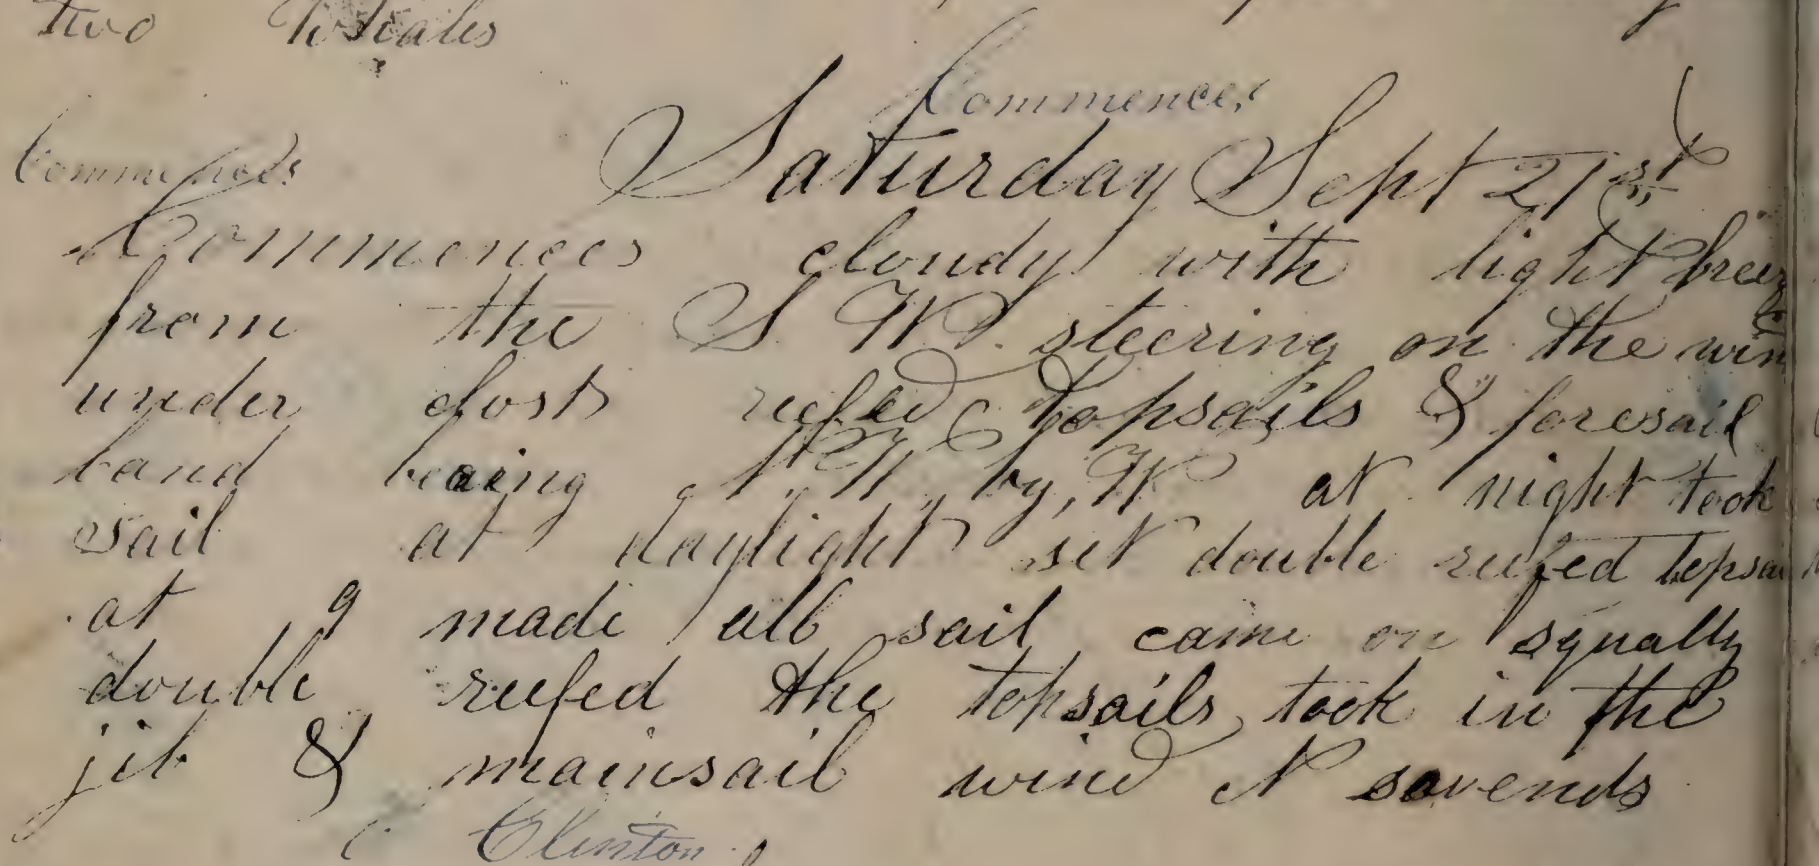 two Whales
Commences
Commences Saturday Sept 21st
Commences cloudy with light breez
from the S W steering on the win
under clost reefed topsails & foresail
land beaing N W by, W at night took
sail at daylight set double reefed topsai
at 9 made all sail came on squally
double reefed the topsails took in the
jib & mainsail wind N so ends
Clinton